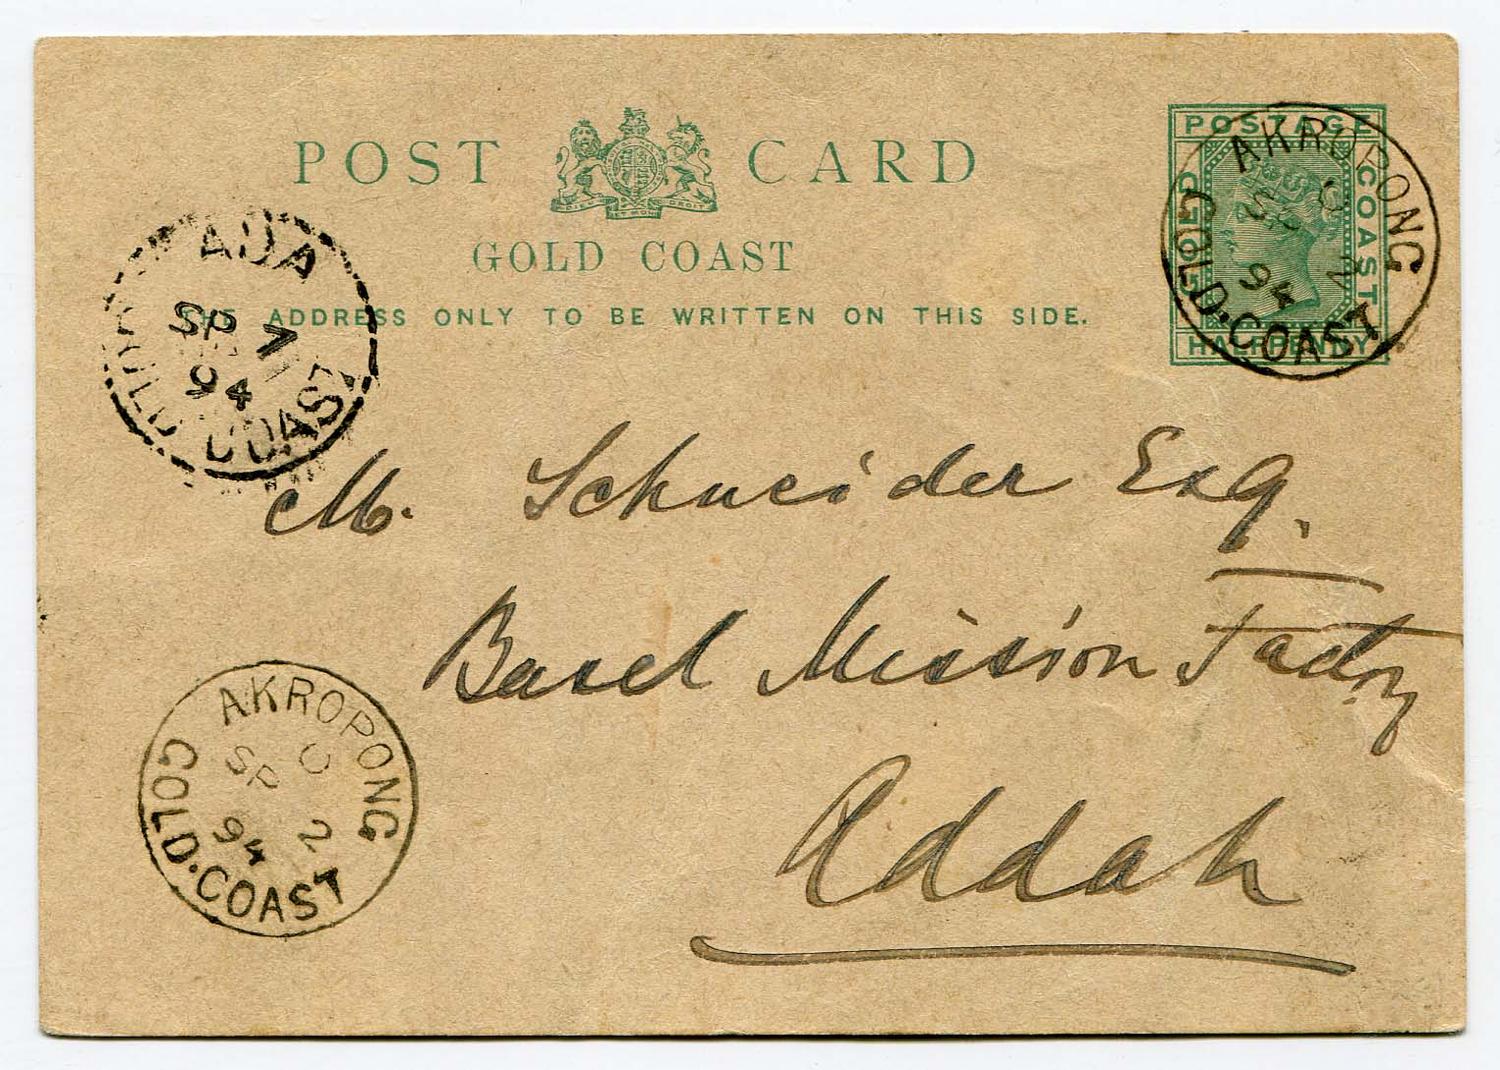 POST CARD
GOLD COAST
THE ADDRESS ONLY TO BE WRITTEN ON THIS SIDE.
POSTAGE
GOLD COAST
HALFPENNY
DIEU ET MON DROIT
AKROPONG
C
SP 2
94
GOLD.COAST
ADA
SP 7
94
GOLD COAST
M. Schneider Esq.
Basel Mission Factory
Addah
AKROPONG
C
SP 2
94
GOLD.COAST